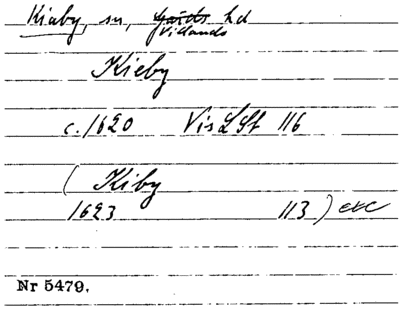 Kiaby, sn, Gärds hd
Villands
Kieby
c. 1620 Vis LSt 116
( Kiby
1623 113 ) etc
Nr 5479.